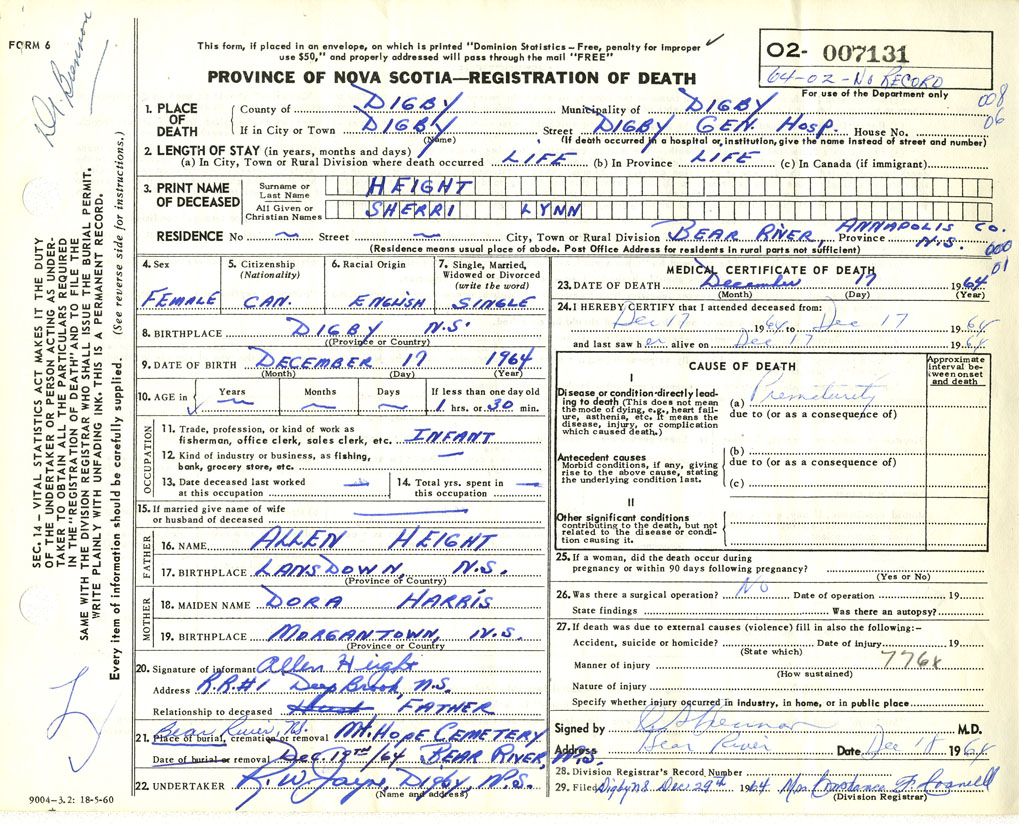 FORM 6
This form, if placed in an envelope, on which is printed "Dominion Statistics – Free, penalty for improper
use $50," and properly addressed will pass through the mail "FREE"
PROVINCE OF NOVA SCOTIA—REGISTRATION OF DEATH
02- 007131
64-02-NO RECORD
For use of the Department only
008
06
1. PLACE OF DEATH
County of DIGBY Municipality of DIGBY
If in City or Town DIGBY Street DIGBY GEN. HOSP. House No.
(Name) (If death occurred in a hospital or institution, give the name instead of street and number)
2. LENGTH OF STAY (in years, months and days)
(a) In City, Town or Rural Division where death occurred LIFE (b) In Province LIFE (c) In Canada (if immigrant)
3. PRINT NAME OF DECEASED
Surname or Last Name HEIGHT
All Given or Christian Names SHERRI LYNN
RESIDENCE No ~ Street ~ City, Town or Rural Division BEAR RIVER, ANNAPOLIS CO. Province N.S.
(Residence means usual place of abode. Post Office Address for residents in rural parts not sufficient)
000
01
4. Sex
FEMALE
5. Citizenship
(Nationality)
CAN.
6. Racial Origin
ENGLISH
7. Single, Married,
Widowed or Divorced
(write the word)
SINGLE
8. BIRTHPLACE DIGBY N.S.
((Province or Country)
9. DATE OF BIRTH DECEMBER 17 1964
(Month) (Day) (Year)
10. AGE in Years ~ Months ~ Days ~ If less than one day old
1 hrs. or 30 min.
OCCUPATION
11. Trade, profession, or kind of work as
fisherman, office clerk, sales clerk, etc. INFANT
12. Kind of industry or business, as fishing,
bank, grocery store, etc. —
13. Date deceased last worked
at this occupation —
14. Total yrs. spent in
this occupation —
15. If married give name of wife
or husband of deceased —
FATHER
16. NAME ALLEN HEIGHT
17. BIRTHPLACE LANSDOWN, N.S.
(Province or Country)
MOTHER
18. MAIDEN NAME DORA HARRIS
19. BIRTHPLACE MORGANTOWN, N.S.
(Province or Country
20. Signature of informant Allen Height
Address R.R.#1 Deep Brook, N.S.
Relationship to deceased FATHER
Bear River, N.S.
21. Place of burial, cremation or removal MT. HOPE CEMETERY
Date of burial or removal Dec. 19TH/64 BEAR RIVER, N.S.
22. UNDERTAKER R.W. Jayne, Digby, N.S.
(Name and address)
9004–3.2: 18-5-60
MEDICAL CERTIFICATE OF DEATH
23. DATE OF DEATH December 17 1964
(Month) (Day) (Year)
24. I HEREBY CERTIFY that I attended deceased from:
Dec 17 1964 to Dec 17 1964
and last saw her alive on Dec 17 1964
CAUSE OF DEATH
Approximate
interval be-
tween onset
and death
I
Disease or condition directly lead-
ing to death (This does not mean
the mode of dying, e.g., heart fail-
ure, asthenia, etc. It means the
disease, injury, or complication
which caused death.)
(a) Prematurity
due to (or as a consequence of)
Antecedent causes
Morbid conditions, if any, giving
rise to the above cause, stating
the underlying condition last.
(b)
due to (or as a consequence of)
(c)
II
Other significant conditions
contributing to the death, but not
related to the disease or condi-
tion causing it.
25. If a woman, did the death occur during
pregnancy or within 90 days following pregnancy?
(Yes or No)
26. Was there a surgical operation? No Date of operation 19
State findings Was there an autopsy?
27. If death was due to external causes (violence) fill in also the following:–
Accident, suicide or homicide? Date of injury 19
(State which)
Manner of injury 776x
(How sustained)
Nature of injury
Specify whether injury occurred in industry, in home, or in public place
Signed by M.D.
Address Bear River Date Dec 18 1964
28. Division Registrar's Record Number
29. Filed Digby NS Dec. 29th 1964 Mrs Constance F.
(Division Registrar)
SEC. 14 – VITAL STATISTICS ACT MAKES IT THE DUTY
OF THE UNDERTAKER OR PERSON ACTING AS UNDER-
TAKER TO OBTAIN ALL THE PARTICULARS REQUIRED
IN THE "REGISTRATION OF DEATH" AND TO FILE THE
SAME WITH THE DIVISION REGISTRAR WHO SHALL ISSUE THE BURIAL PERMIT.
WRITE PLAINLY WITH UNFADING INK. THIS IS A PERMANENT RECORD.
Every item of information should be carefully supplied. (See reverse side for instructions.)